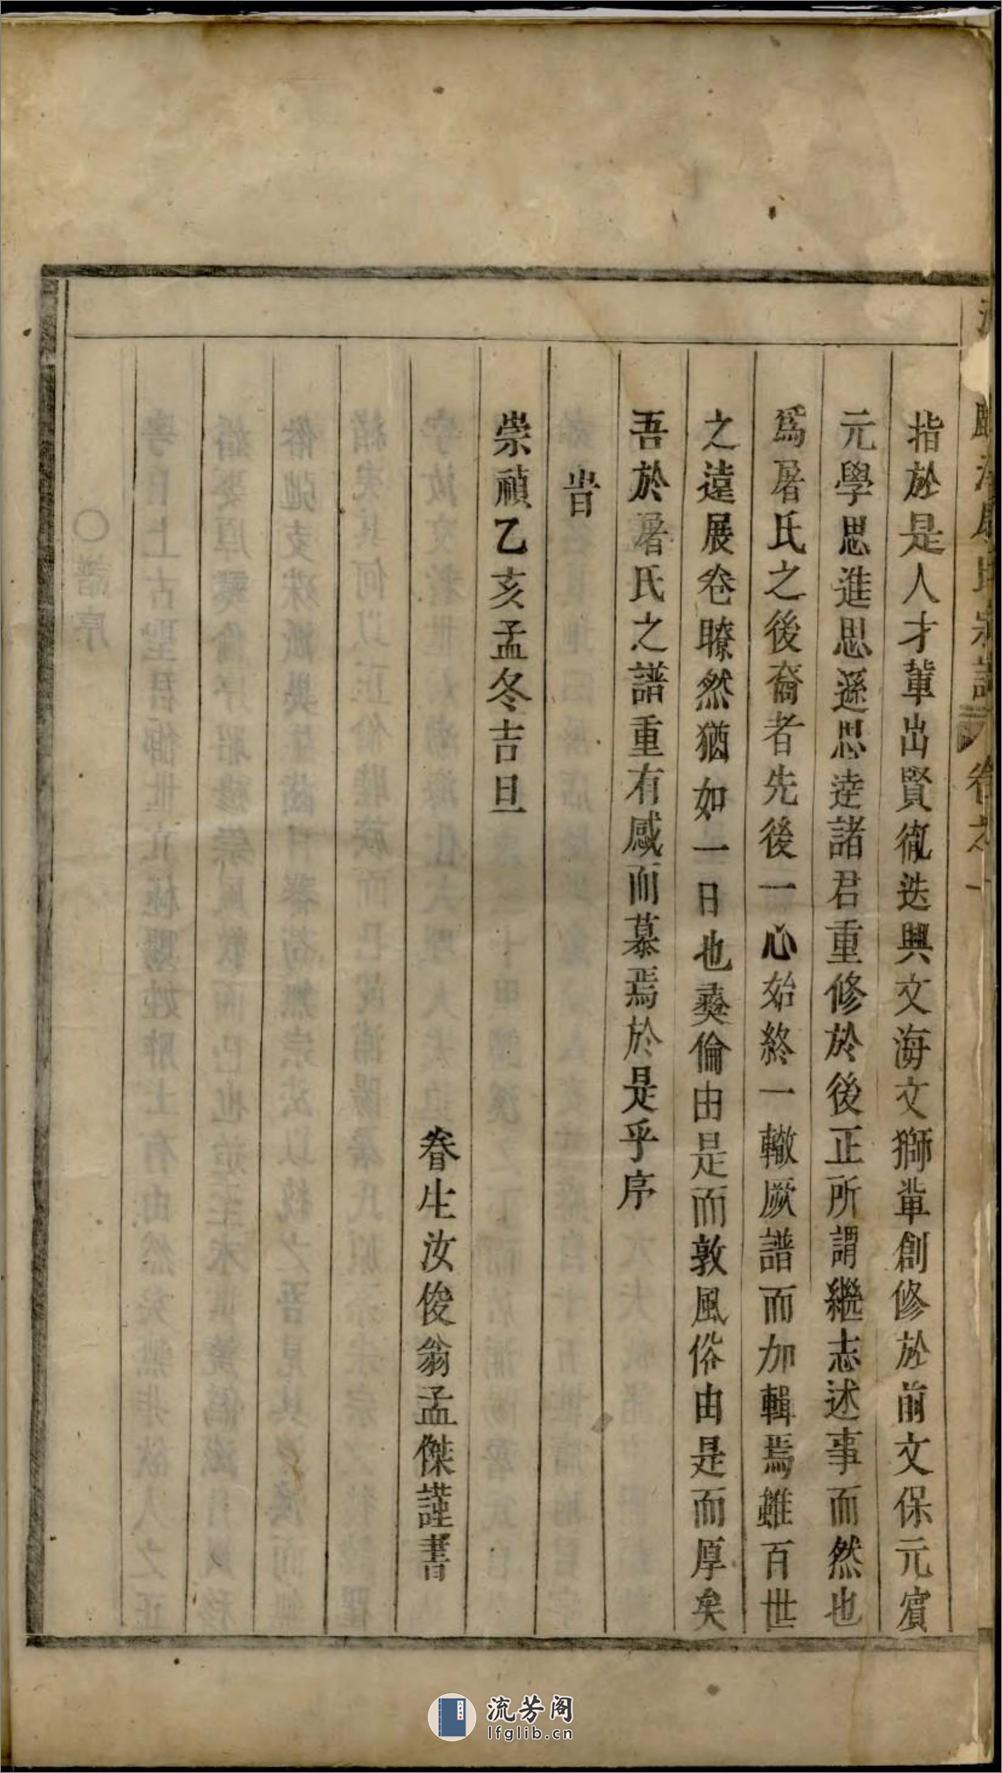 指於是人才軰出賢徹迭興文海文獅軰創修於前文保元賔
元學思進思遜思逹諸君重修於後正所謂繼志述事而然也
爲屠氏之後裔者先後一心始終一轍厥譜而加輯焉雖百世
之遠展卷瞭然猶如一日也彜倫由是而敦風俗由是而厚矣
吾於屠氏之譜重有感而慕焉於是乎序
旹
崇禎乙亥孟冬吉旦
眷生汝俊翁孟傑謹書
流芳阁
lfglib.cn